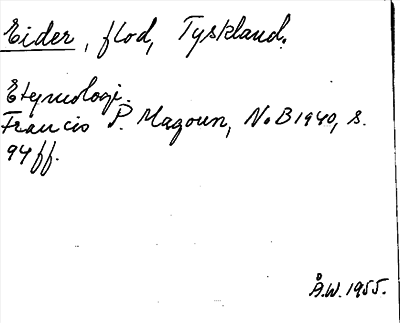 Eider, flod, Tyskland.
Etymologi.
Francis P. Magoun, NoB 1940, s.
94 ff.
Å.W. 1955.